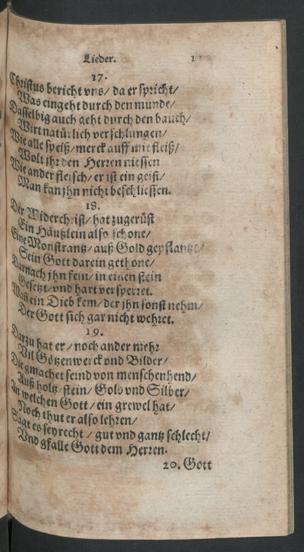 Lieder.
17.
Christus bericht vns/ da er spricht/
Was eingeht durch den munde/
Dasselbig auch geht durch den bauch/
Wirt natürlich verschlungen/
Wie alle speiß/ merck auff mit fleiß/
Wolt ihr den Herren niessen
Wie ander fleisch/ er ist ein geist/
Man kan jhn nicht beschliessen.
18.
Der Widerchrist/ hat zugerüst
Ein Häußlein also schone/
Eine Monstrantz/ auß Gold gepflantzt/
Sein Gott darein gethone/
Darnach jhn fein/ in einen stein
Gesetzt/ vnd hart versperret.
Wañ ein Dieb kem/ der jhn sonst nehm/
Der Gott sich gar nicht wehret.
19.
Darzu hat er/ noch ander mehr
Vil Götzenwerck vnd Bilder/
Die gmachet seind von menschenhend/
Auß holtz/ stein/ Gold vnd Silber/
An welchen Gott/ ein grewel hat/
Noch thut er also lehren/
Sagt es sey recht/ gut vnd gantz schlecht/
Vnd gfalle Gott dem Herren.
20. Gott